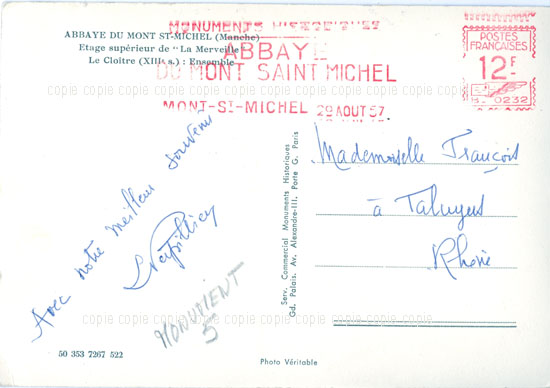 ABBAYE DU MONT ST-MICHEL (Manche)
Etage supérieur de "La Merveille"
Le Cloître (XIIIe s.) : Ensemble
MONUMENTS HISTORIQUES
ABBAYE
DU MONT SAINT MICHEL
MONT-ST-MICHEL 29 AOUT 57
POSTES
FRANÇAISES
12F
B. 0232
copie copie copie copie copie copie copie copie copie copie copie
Avec notre meilleur souvenir
Mademoiselle François
à Taluyers
Rhône
Serv. Commercial Monuments Historiques
Gd. Palais. Av. Alexandre-III. Porte G. Paris
copie copie copie copie copie copie copie copie copie copie copie
MONUMENT
5
copie copie copie copie copie copie copie copie copie copie copie
50 353 7267 522
Photo Véritable